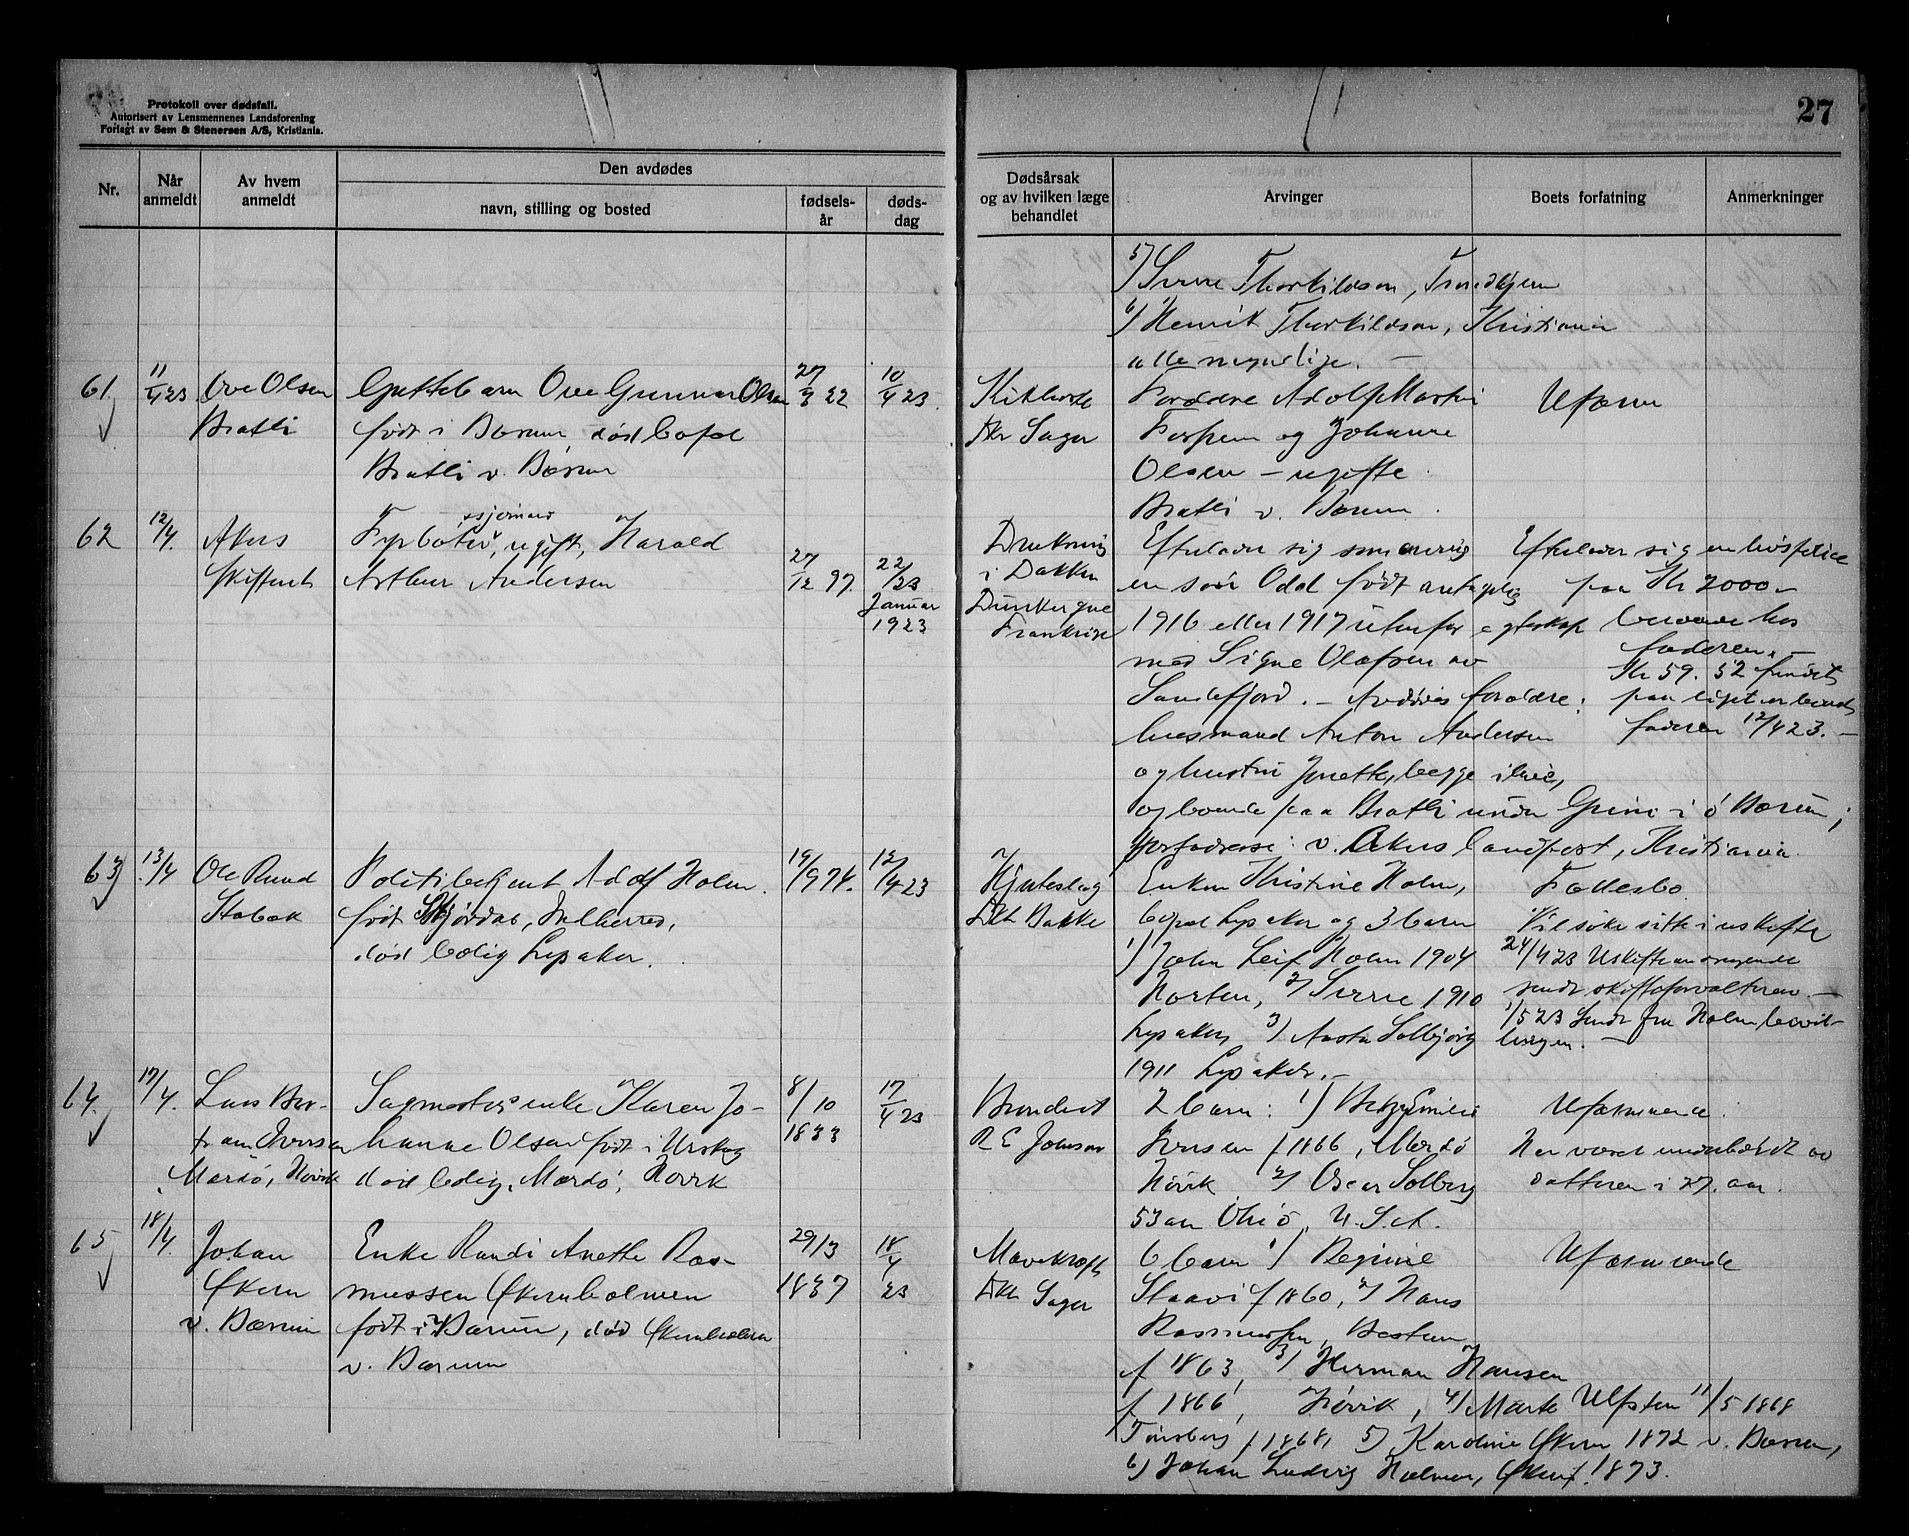 Protokoll over dødsfall.
Autorisert av Lensmennenes Landsforening
Forlagt av Sem & Stenersen A/S, Kristiania.
27
Nr.
Når anmeldt
Av hvem anmeldt
Den avdødes
navn, stilling og bosted
fødsels-år
døds-dag
Dødsårsak og av hvilken læge behandlet
Arvinger
Boets forfatning
Anmerkninger
5) Sverre Thorkildsen, Trondhjem
6) Henrik Thorkildsen, Kristiania
alle myndige. —
61
11/4 23
Ove Olsen
Bratli
Guttebarn Ove Gunnar Olsen
født i Bærum, død
Bratli v. Bærum
27/3 22
10/4 23.
Kikhoste
Dr Sager
Forældre Adolf Martin
og Johanne
Olsen — ugifte
Bratli v. Bærum.
62
12/4.
Akers
skifteret
Fyrbøter, ugift, Harald
Arthur Andersen
27/12 97.
22/23
Januar
1923
Drukning
i Dokken
Dunkerque
Frankrige
Efterlader sig
en søn Odd født antagelig
1916 eller 1917 utenfor egteskap
med Signe Olafsen av
Sandefjord. — Avdødes forældre:
husmand Anton Andersen
og hustru Josette, begge ilive,
og boende paa Bratli under Grini i ø Bærum;
v. Akers landpost, Kristiania.
Efterlader sig en
paa Kr 2000 —
beroende hos
faderen. —
Kr 59. 52 fundet
paa liget
faderen 12/4 23. —
63
13/4
Ole Rund
Stabæk
Politibetjent Adolf Holm.
født Skjørdal,
død bolig Lysaker.
19/9 74.
12/4 23
Hjerteslag
Dr Bakke
Enken Kristine Holm,
bopæl Lysaker og 3 barn
1) John Leif Holm 1904
Horten, 2) Sverre 1910
Lysaker, 3) Aasta Solbjørg
1911 Lysaker. —
Fællesbo
Vil søke sitte i uskifte
24/4 23 Uskifteandragende
sendt skifteforvalteren. —
1/5 23 Sendt fru Holm bevil-
lingen. —
64.
17/4.
Lars Ber-
tram Iversen
Mardø, Høvik
Sagmesterenke Karen Jo-
hanne Olsen født i Urskog
død bolig, Mardø, Høvik
8/10
1833
17/4 23
Brondert
R E Johnsen
2 barn: 1) Betzy Emilie
Iversen f 1866, Mardø
Høvik 2) Oscar Solberg
53 aar Ohio, U.S.A.
Uformuende.
Har været underholdt av
datteren i 27. aar.
65
18/4.
Johan
Økern
v. Bærum
Enke Randi Anette Ras-
mussen Økernholmen
født i Bærum, død Økernholmen
v. Bærum
29/3
1837
18/4
23
Mavekræft
Dr Sager
6 barn 1) Regine
Slaavi f 1860, 2) Hans
Rasmussen, Bestum
f 1863, 3) Herman Hansen
f 1866, Høvik, 4) Marte Ulfsten 11/5 1868
Tønsberg f 1868, 5) Karoline Økern 1872 v. Bærum,
6) Johan Ludvig Holmen, Økern f. 1873.
Uformuende